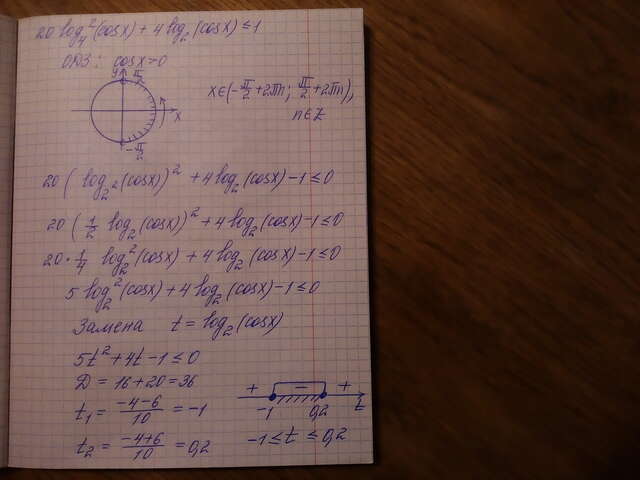 20 log₄²(cosx) + 4 log₂(cosx) ≤ 1
ОДЗ: cosx>0
y π/2
x∈(-π/2+2πn; π/2+2πn),
x
n∈Z
-π/2
20 (log₂²(cosx))² + 4 log₂(cosx) - 1 ≤ 0
20 (1/2 log₂(cosx))² + 4 log₂(cosx) - 1 ≤ 0
20 · 1/4 log₂²(cosx) + 4 log₂(cosx) - 1 ≤ 0
5 log₂²(cosx) + 4 log₂(cosx) - 1 ≤ 0
Замена t = log₂(cosx)
5t² + 4t - 1 ≤ 0
D = 16 + 20 = 36
t₁ = (-4-6)/10 = -1
+ - +
-1 0,2 t
t₂ = (-4+6)/10 = 0,2
-1 ≤ t ≤ 0,2